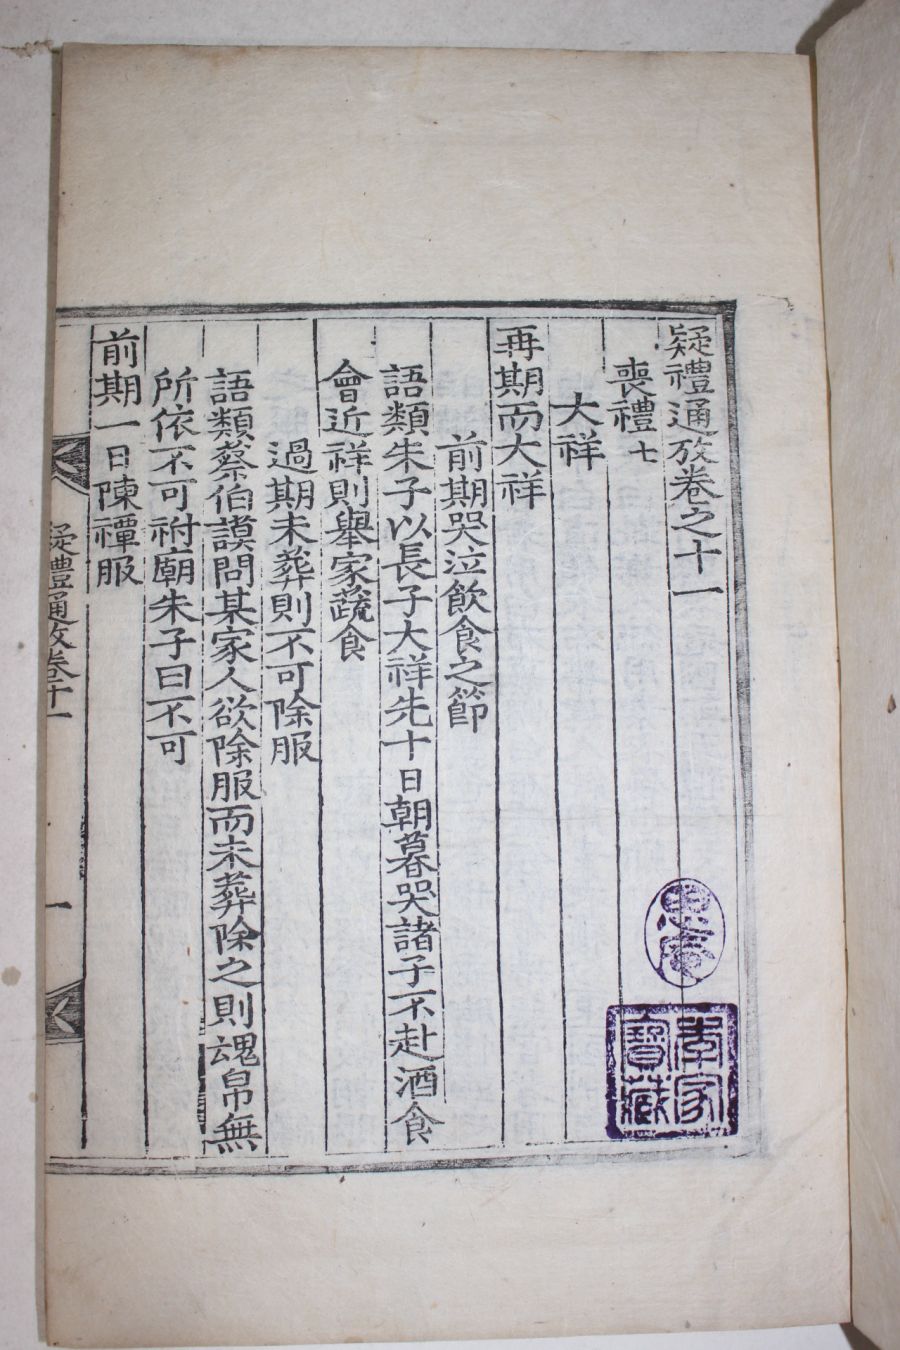 疑禮通攷卷之十一
喪禮七
大祥
再期而大祥
前期哭泣飮食之節
語類朱子以長子大祥先十日朝暮哭諸子不赴酒食
會近祥則擧家蔬食
過期未葬則不可除服
語類蔡伯謨問某家人欲除服而未葬除之則魂帛無
所依不可祔廟朱子曰不可
前期一日陳禫服
疑禮通攷卷十一
一
思庵
李家
寶藏